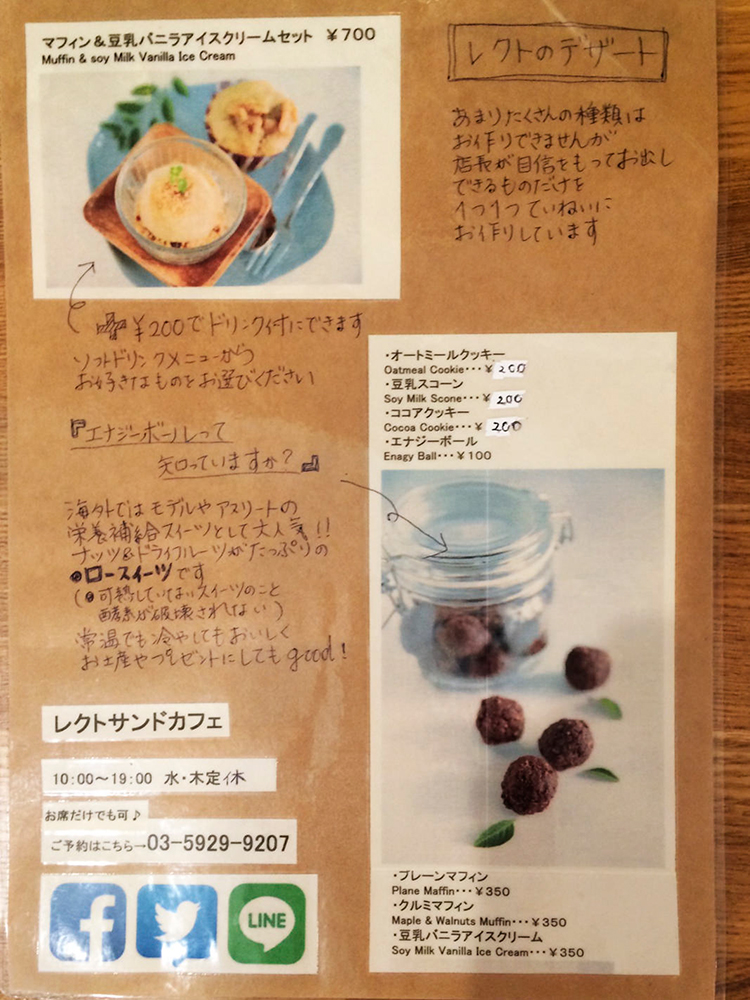 マフィン&豆乳バニラアイスクリームセット ¥700
Muffin & soy Milk Vanilla Ice Cream
レクトのデザート
あまりたくさんの種類は
お作りできませんが
店長が自信をもってお出し
できるものだけを
1つ1つていねいに
お作りしています
¥200でドリンク付にできます
ソフトドリンクメニューから
お好きなものをお選びください
『エナジーボールって
知っていますか?』
海外ではモデルやアスリートの
栄養補給スイーツとして大人気!!
ナッツ&ドライフルーツがたっぷりの
ロースイーツです
(可熱していないスイーツのこと
酵素が破壊されない)
常温でも冷やしてもおいしく
お土産やプレゼントにしてもgood!
・オートミールクッキー
Oatmeal Cookie・・・¥200
・豆乳スコーン
Soy Milk Scone・・・¥200
・ココアクッキー
Cocoa Cookie・・・¥200
・エナジーボール
Enagy Ball・・・¥100
・プレーンマフィン
Plane Maffin・・・¥350
・クルミマフィン
Maple & Walnuts Muffin・・・¥350
・豆乳バニラアイスクリーム
Soy Milk Vanilla Ice Cream・・・¥350
レクトサンドカフェ
10:00～19:00 水・木定休
お席だけでも可♪
ご予約はこちら→03-5929-9207
LINE